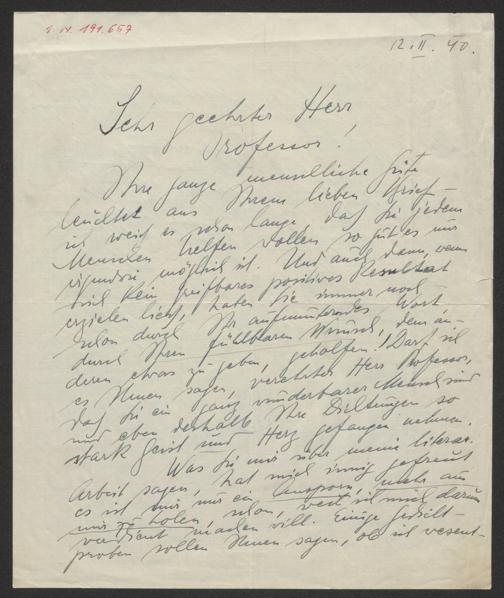 I. N. 191.657
12. II. 40.
Sehr geehrter Herr
Professor!
Ihre ganze menschliche Güte
leuchtet aus Ihrem lieben Brief –
ich weiß es schon lange, daß Sie jedem
Menschen helfen wollen, so gut es nur
irgendwie möglich ist. Und auch dann, wenn
sich kein greifbares positives Resultat
erzielen ließ, haben Sie immer noch
schon durch Ihr aufmunterndes Wort
durch Ihren fühlbaren Wunsch, dem an-
deren etwas zu geben, geholfen! Darf ich
es Ihnen sagen, verehrter Herr Professor,
daß Sie ein ganz wunderbarer Mensch sind
und eben deshalb Ihre Dichtungen so
stark Geist und Herz gefangen nehmen.
Was Sie mir über meine literar.
Arbeit sagen, hat mich innig gefreut
es ist mir nur ein Ansporn, mehr aus
mir zu holen, schon, weil ich mich darum
verdient machen will. Einige Gedicht-
proben sollen Ihnen sagen, ob ich wesent-